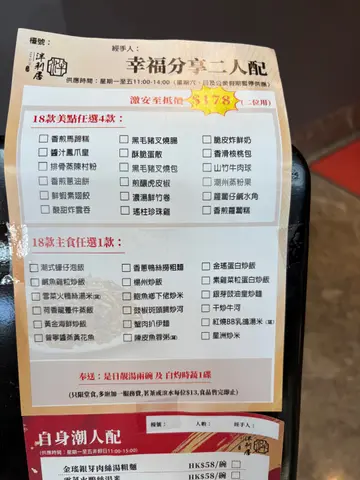 檯號：
經手人：
津利居
幸福分享二人配
供應時間：星期一至五11:00-14:00（星期六、日及公眾假期暫停供應）
激安至抵價 $178 （二位用）
18款美點任選4款：
香煎馬蹄糕 黑毛豬叉燒腸 脆皮炸鮮奶
醬汁鳳爪皇 酥脆蛋散 香滑核桃包
排骨蒸陳村粉 黑毛豬叉燒包 山竹牛肉球
香煎蔥油餅 煎釀虎皮椒 潮州蒸粉果
鮮蝦菜翅餃 濃湯鮮竹卷 蘿蔔仔鹹水角
酸甜炸雲吞 瑤柱珍珠雞 香煎蘿蔔糕
18款主食任選1款：
潮式蠔仔泡飯 香蔥鴨絲撈粗麵 金瑤蛋白炒飯
鹹魚雞粒炒飯 楊州炒飯 素雞菜粒蛋白炒飯
雪菜火鴨絲湯米 鮑魚鄉下佬炒米 銀芽豉油皇炒麵
荷香龍躉件蒸飯 豉椒斑頭腩炒河 干炒牛河
黃金海鮮炒飯 蟹肉扒伊麵 紅燒BB乳鴿湯米
普寧醬蒸黃花魚 陳皮魚蓉粥 星洲炒米
奉送：是日靚湯兩碗 及 白灼時蔬1碟
（只限堂食，多送加一服務費，茗茶或淡水每位$13，食品售完即止）
自身潮人配
檯號： 人數： 經手人：
（供應時間：星期一至五非假日11:00-15:00）
金瑤銀芽肉絲湯粗麵 HK$58/碗
HK$58/碗